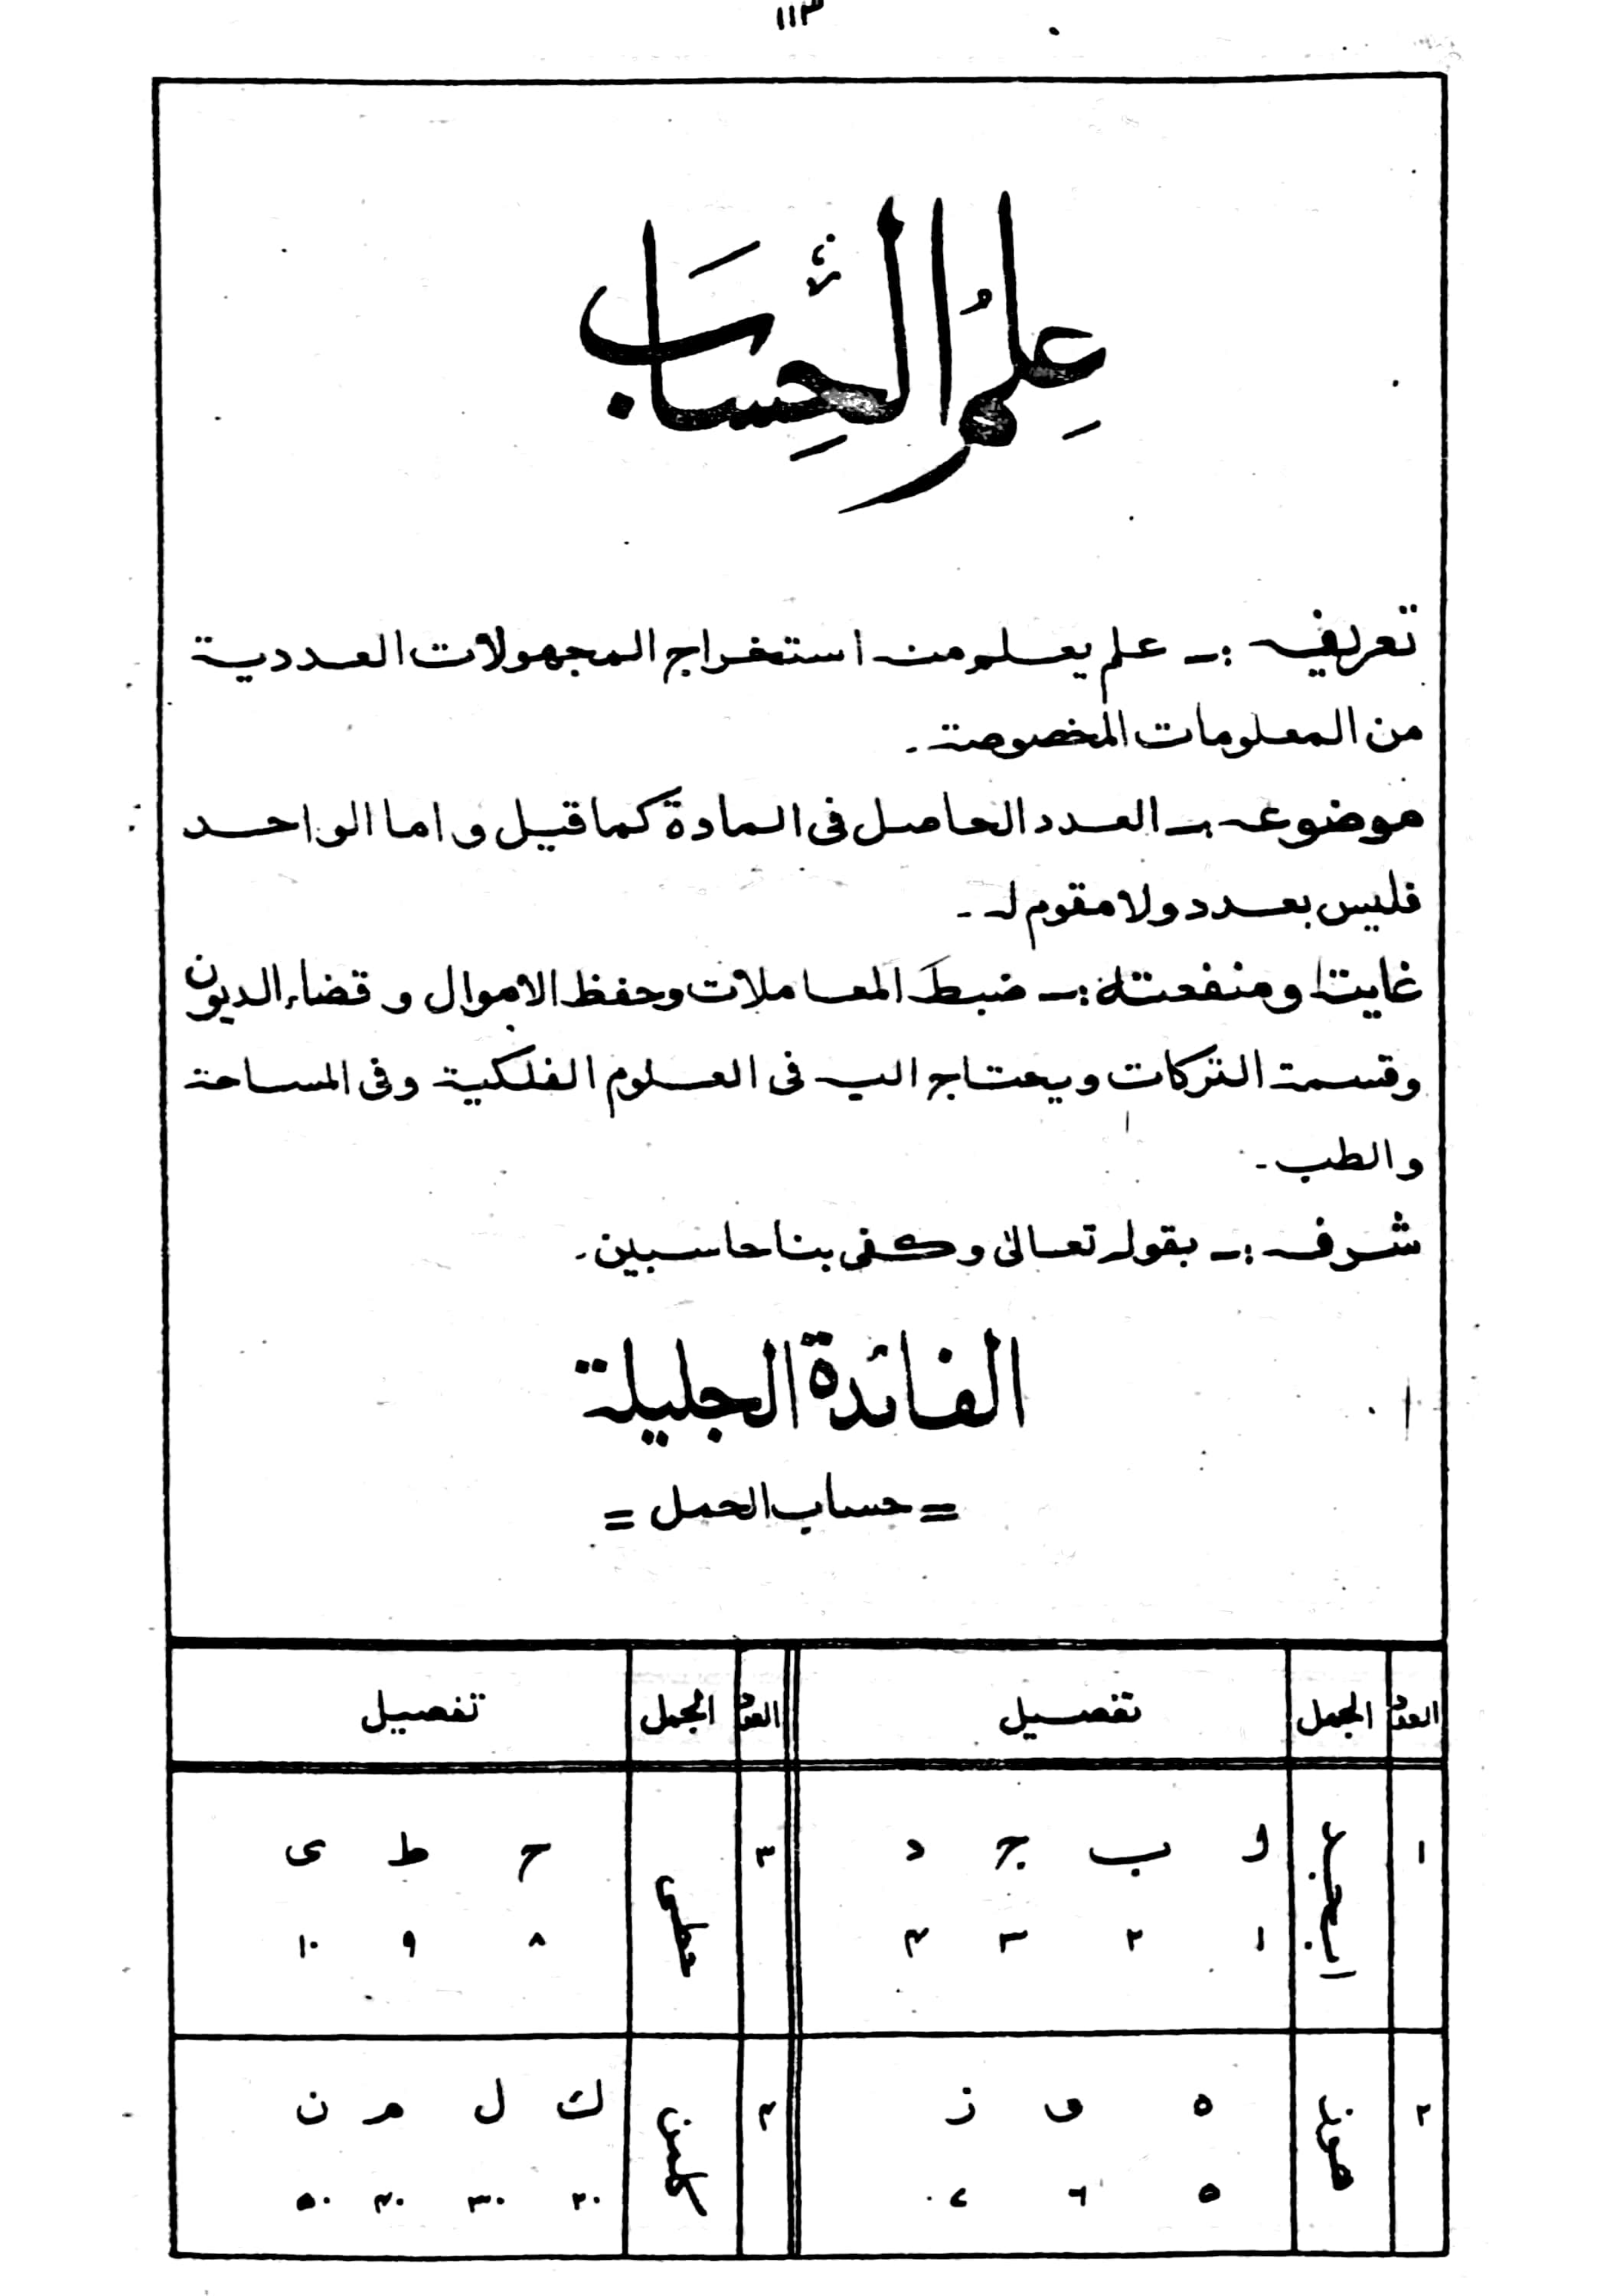 ١١٣
علم الحساب
تعريف :۔ علم يعلم منه استخراج المجهولات العددية
من المعلومات المخصوصة۔
موضوعه :۔ العدد الحاصل فى المادة كما قيل و اما الواحد
فليس بعدد ولا مقوم له ۔
غايته ومنفعته :۔ ضبط المعاملات وحفظ الاموال و قضاء الديون
وقسمة التركات ويحتاج اليه فى العلوم الفلكية وفى المساحة
والطب ۔
شرفه :۔ بقوله تعالىٰ وكفى بنا حاسبين ۔
الفائدة الجليلة
= حساب الحمل =
العدد الجمل تفصيل العدد الجمل تفصيل
١ ابجد ا ب ج د ٣ حطى ح ط ى
١ ٢ ٣ ۴ ٨ ٩ ١٠
٢ هوز ه و ز ۴ كلمن ك ل م ن
٥ ٦ ٧ ٢٠ ٣٠ ۴٠ ٥٠